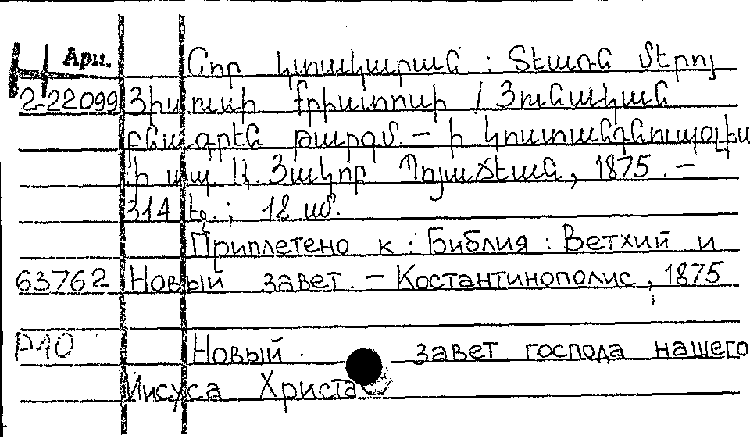 Арм. Նոր կտակարան : Տեառն մերոյ
2-22099 Յիսուսի Քրիստոսի / Յունական
բնագրէն թարգմ. – ի Կոստանդնուպօլիս
ի տպ. Ա. Յակոբ Պոյաճեան, 1875. –
314 էջ.; 18 սմ.
Приплетено к : Библия : Ветхий и
63762 Новый завет. – Костантинополис, 1875
Р10 Новый завет господа нашего
Иисуса Христа